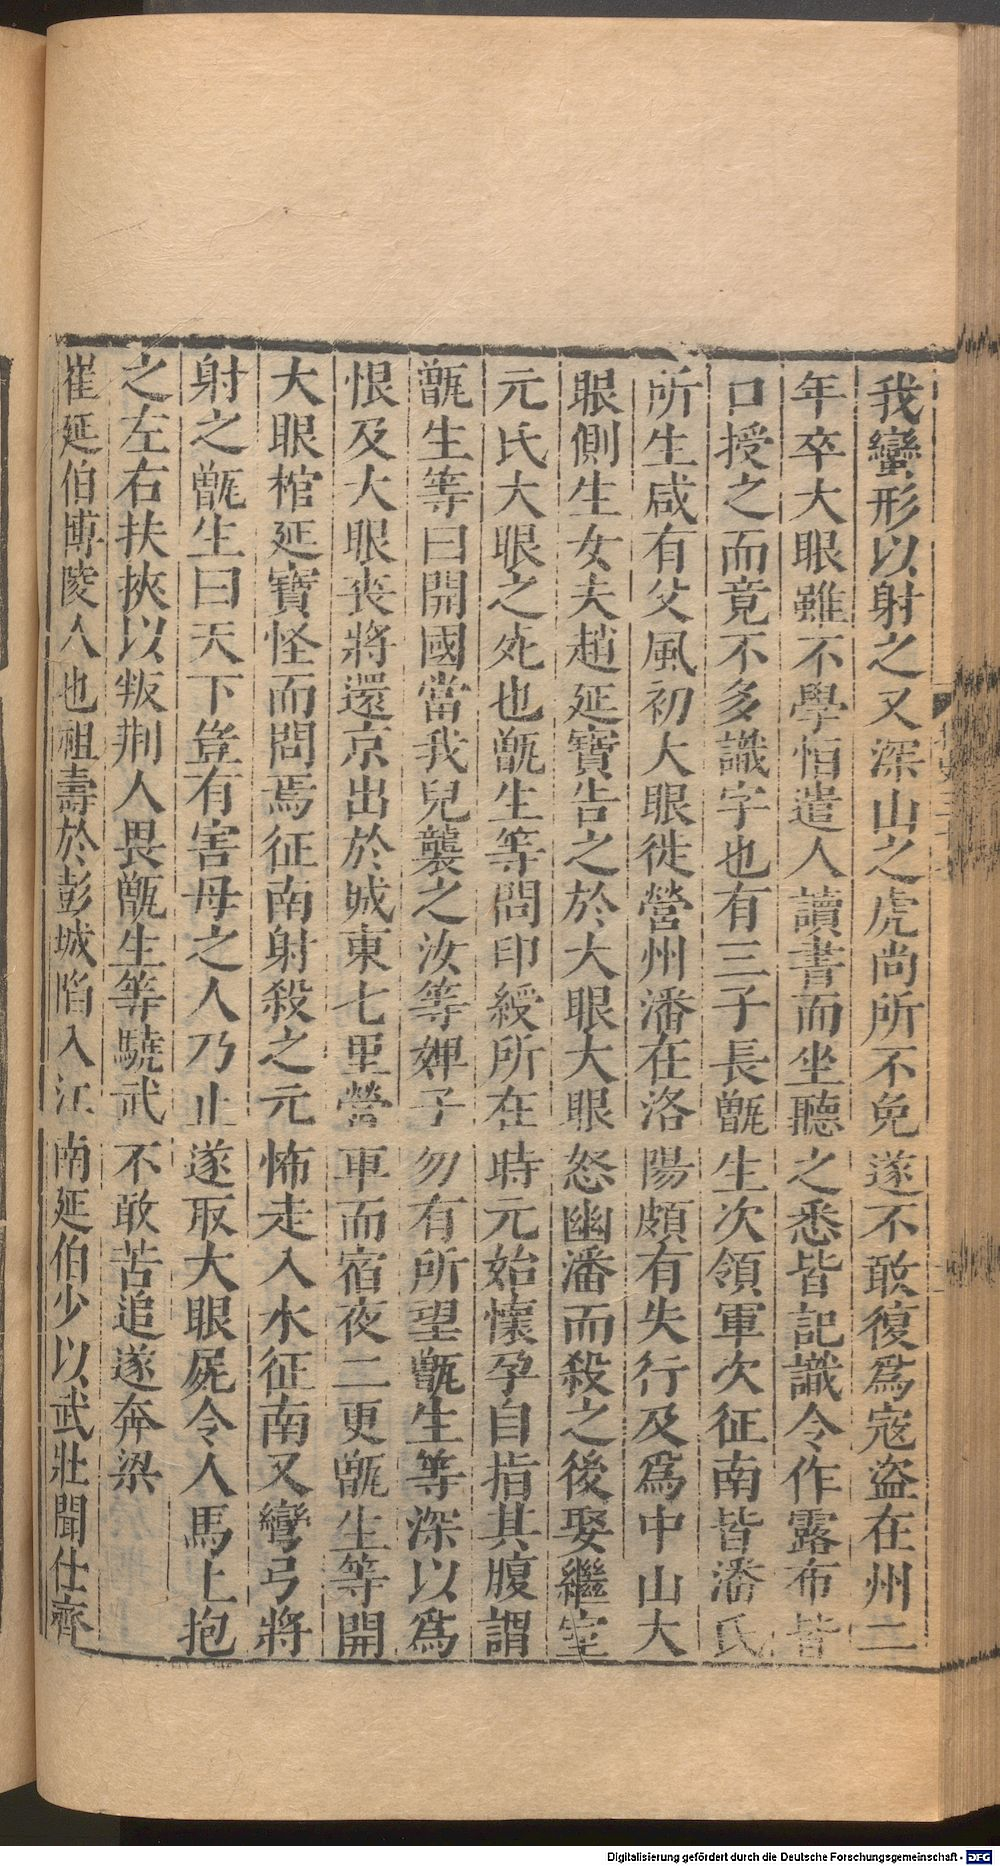 我蠻形以射之又深山之虎尚所不免遂不敢復爲寇盜在州二
年卒大眼雖不學恒遣人讀書而坐聽之悉皆記識令作露布皆
口授之而竟不多識字也有三子長甑生次領軍次征南皆潘氏
所生咸有父風初大眼徙營州潘在洛陽頗有失行及爲中山大
眼側生女夫趙延寶告之於大眼大眼怒幽潘而殺之後娶繼室
元氏大眼之死也甑生等問印綬所在時元始懷孕自指其腹謂
甑生等曰開國當我兒襲之汝等婢子勿有所望甑生等深以爲
恨及大眼喪將還京出於城東七里營軍而宿夜二更甑生等開
大眼棺延寶怪而問焉征南射殺之元怖走入水征南又彎弓將
射之甑生曰天下豈有害母之人乃止遂取大眼屍令人馬上抱
之左右扶挾以叛荆人畏甑生等驍武不敢苦追遂奔梁
崔延伯博陵人也祖壽於彭城陷入江南延伯少以武壯聞仕齊
Digitalisierung gefördert durch die Deutsche Forschungsgemeinschaft - DFG